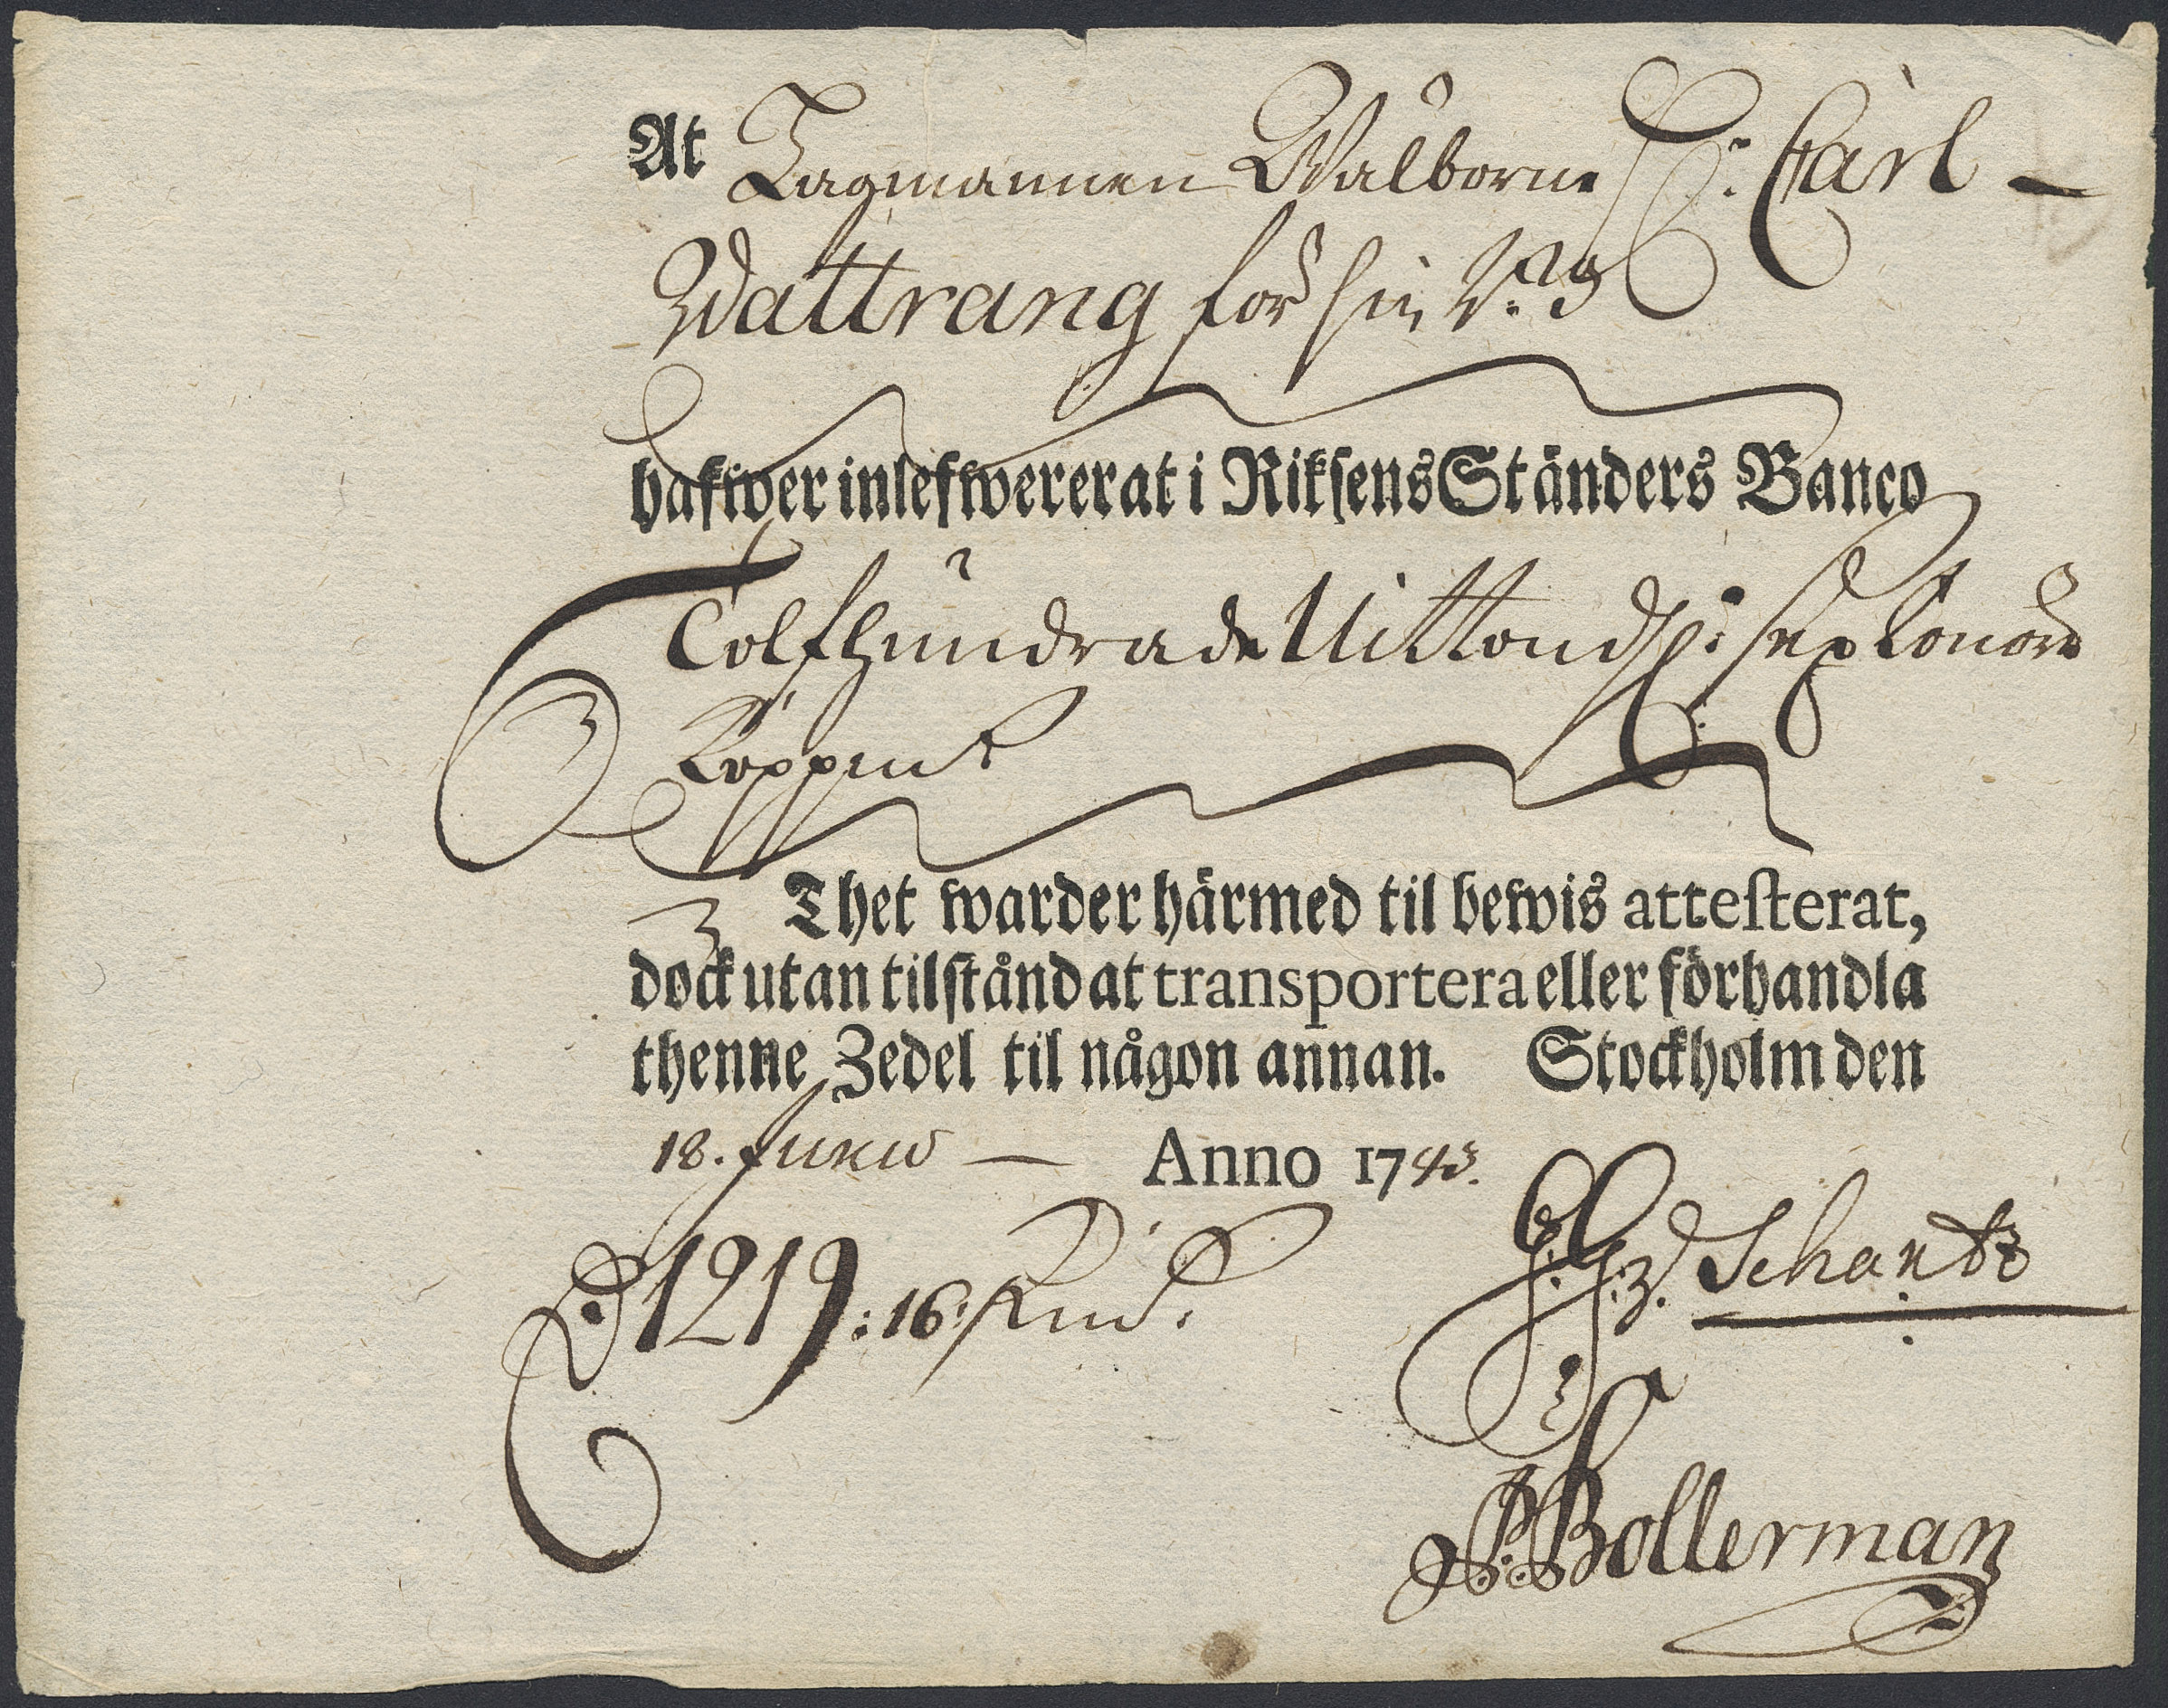 At Lagmannen Wälborne Hr: Carl
Wattrang för sin
hafwer inlefwererat i Riksens Ständers Banco
Tolfhundrade Nitton dlr: sexton öre
Kopp:mt
Thet warder härmed til bewis attesterat,
dock utan tilstånd at transportera eller förhandla
thenne Zedel til någon annan. Stockholm den
18. Junii — Anno 1743.
D 1219:16: Kmt.
Schantz
Bollerman